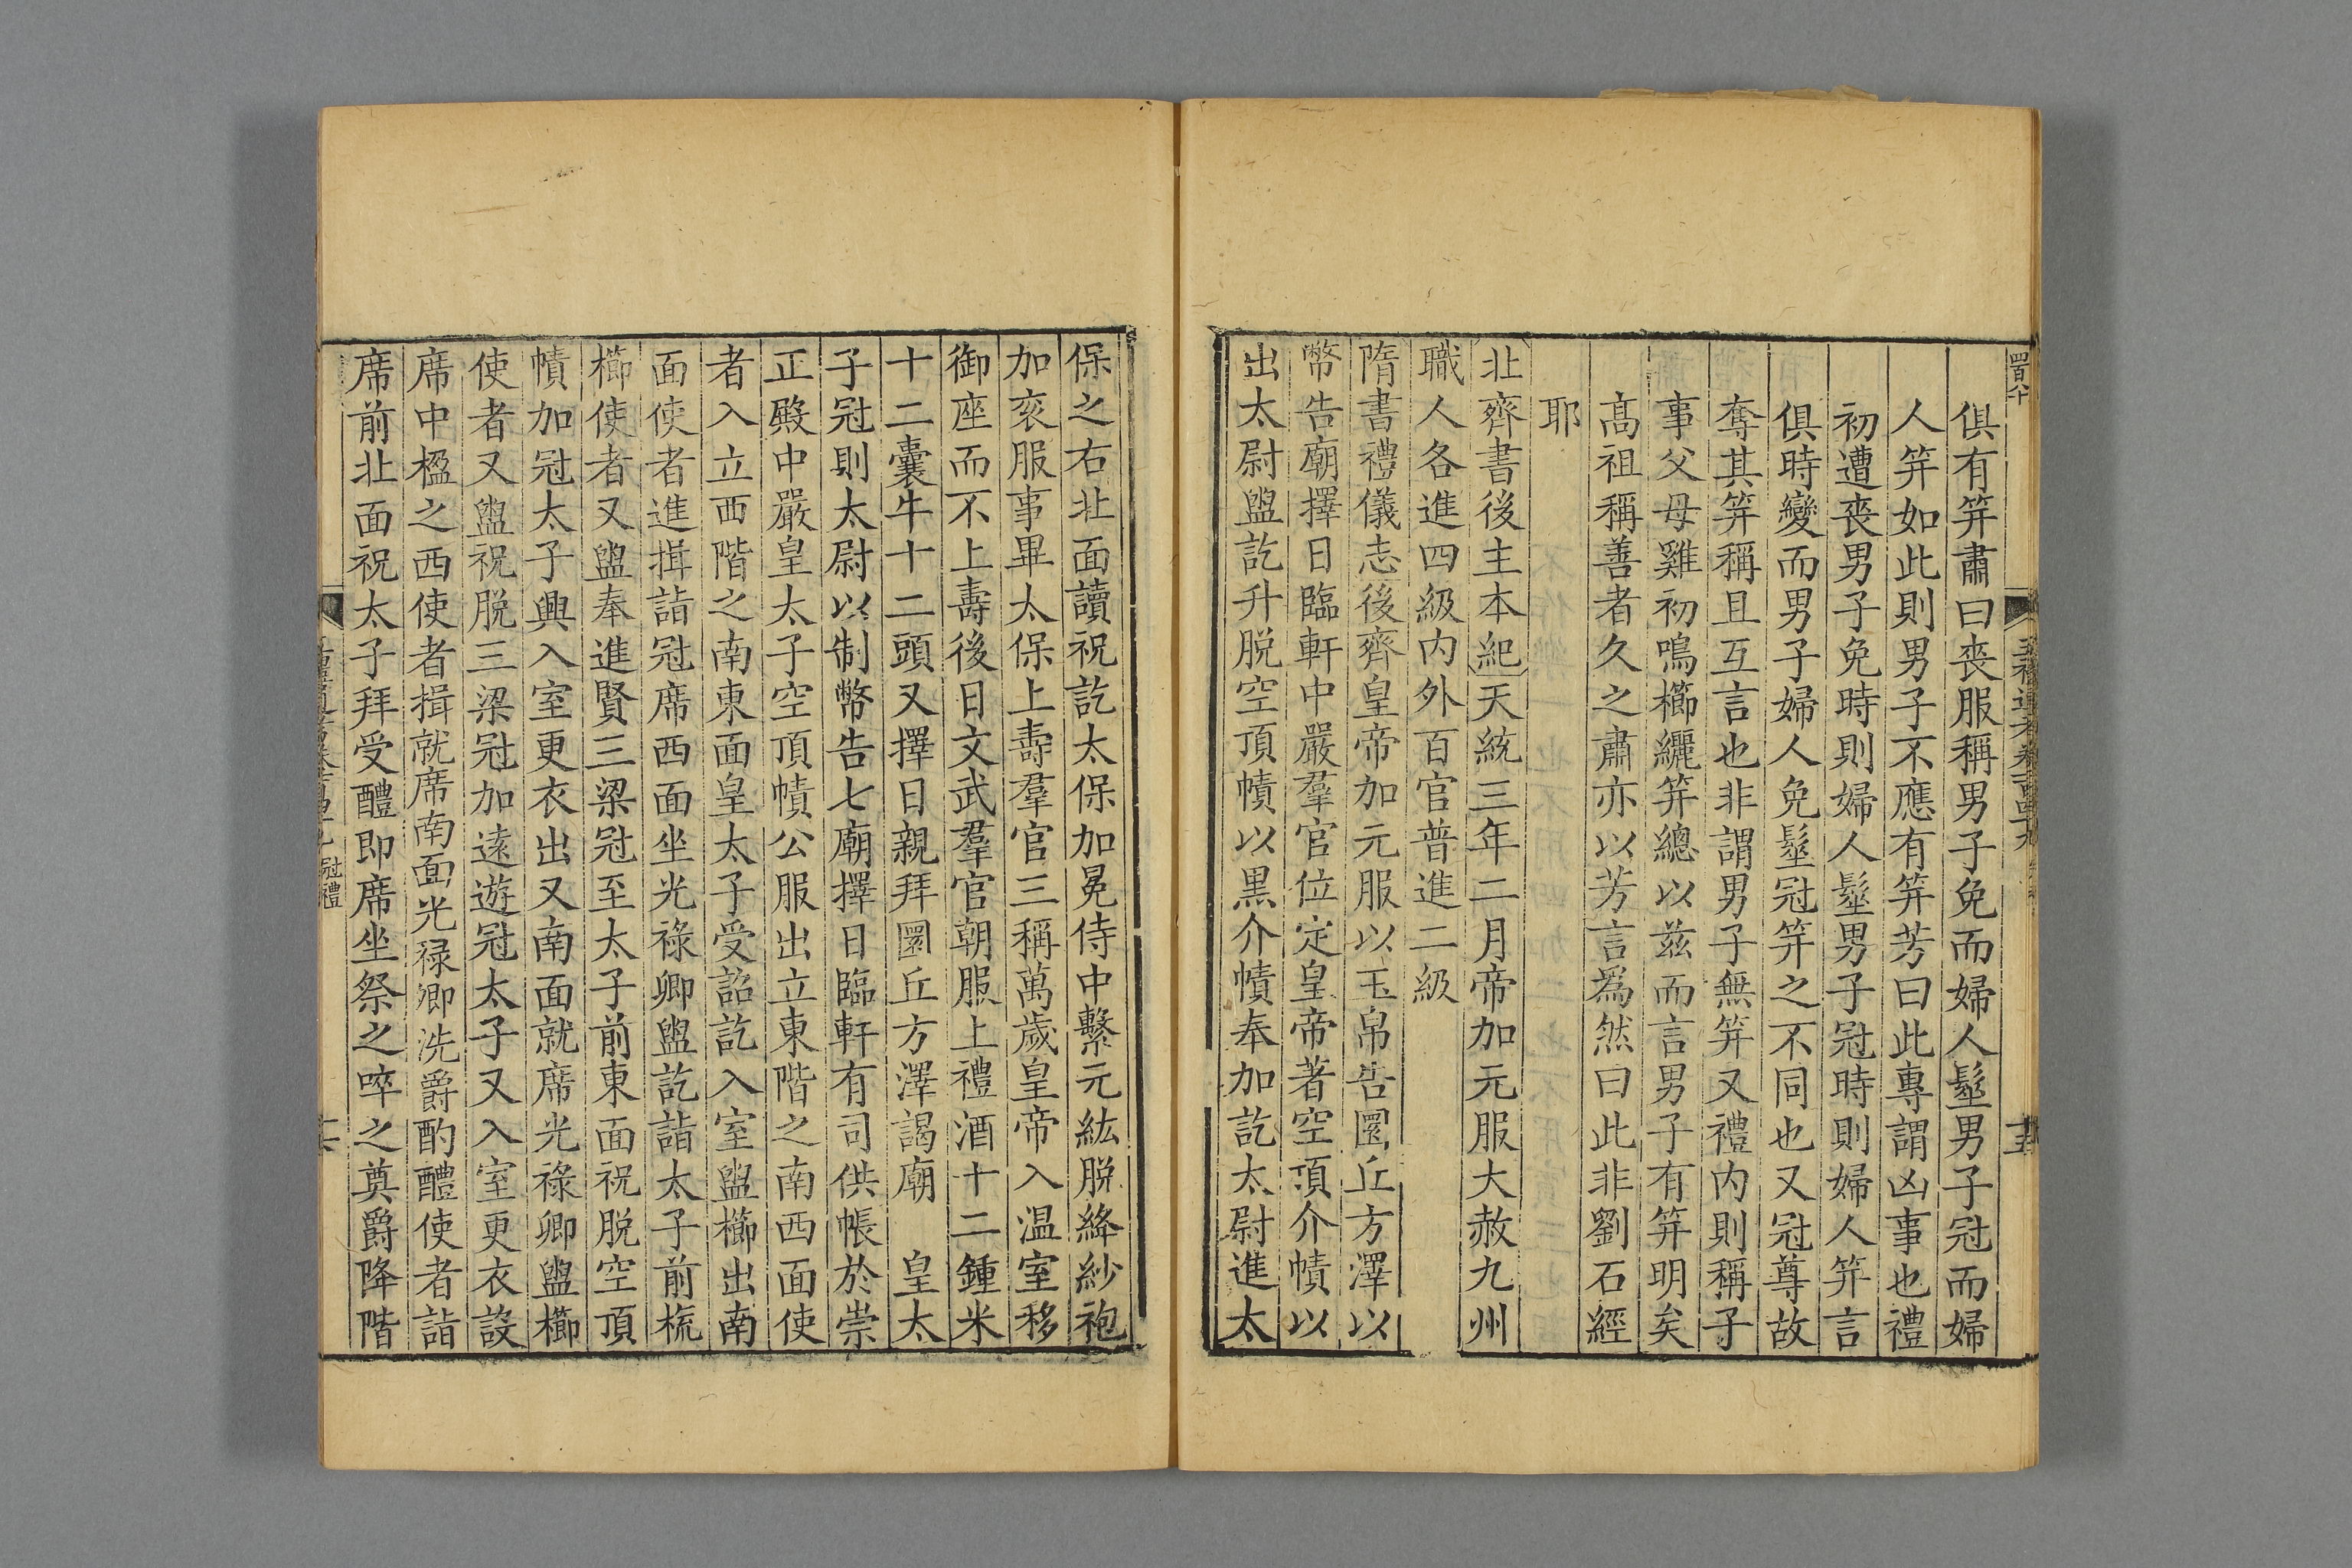 俱有笄肅曰喪服稱男子免而婦人髽男子冠而婦
人笄如此則男子不應有笄芳曰此專謂凶事也禮
初遭喪男子免時則婦人髽男子冠時則婦人笄言
俱時變而男子婦人免髽冠笄之不同也又冠尊故
奪其笄稱且互言也非謂男子無笄又禮内則稱子
事父母雞初鳴櫛纚笄總以兹而言男子有笄明矣
高祖稱善者久之肅亦以芳言爲然曰此非劉石經
耶
北齊書後主本紀天統三年二月帝加元服大赦九州
職人各進四級内外百官普進二級
隋書禮儀志後齊皇帝加元服以玉帛告圜丘方澤以
幣告廟擇日臨軒中嚴羣官位定皇帝著空頂介幘以
出太尉盥訖升脱空頂幘以黒介幘奉加訖太尉進太
保之右北面讀祝訖太保加冕侍中繫元紘脱絳紗袍
加衮服事畢太保上壽羣官三稱萬歲皇帝入温室移
御座而不上壽後日文武羣官朝服上禮酒十二鍾米
十二囊牛十二頭又擇日親拜圜丘方澤謁廟　皇太
子冠則太尉以制幣告七廟擇日臨軒有司供帳於崇
正殿中嚴皇太子空頂幘公服出立東階之南西面使
者入立西階之南東面皇太子受詔訖入室盥櫛出南
面使者進揖詣冠席西面坐光禄卿盥訖詣太子前梳
櫛使者又盥奉進賢三梁冠至太子前東面祝脱空頂
幘加冠太子興入室更衣出又南面就席光禄卿盥櫛
使者又盥祝脱三梁冠加遠遊冠太子又入室更衣設
席中楹之西使者揖就席南面光禄卿洗爵酌醴使者詣
席前北面祝太子拜受醴即席坐祭之啐之奠爵降階
冠禮